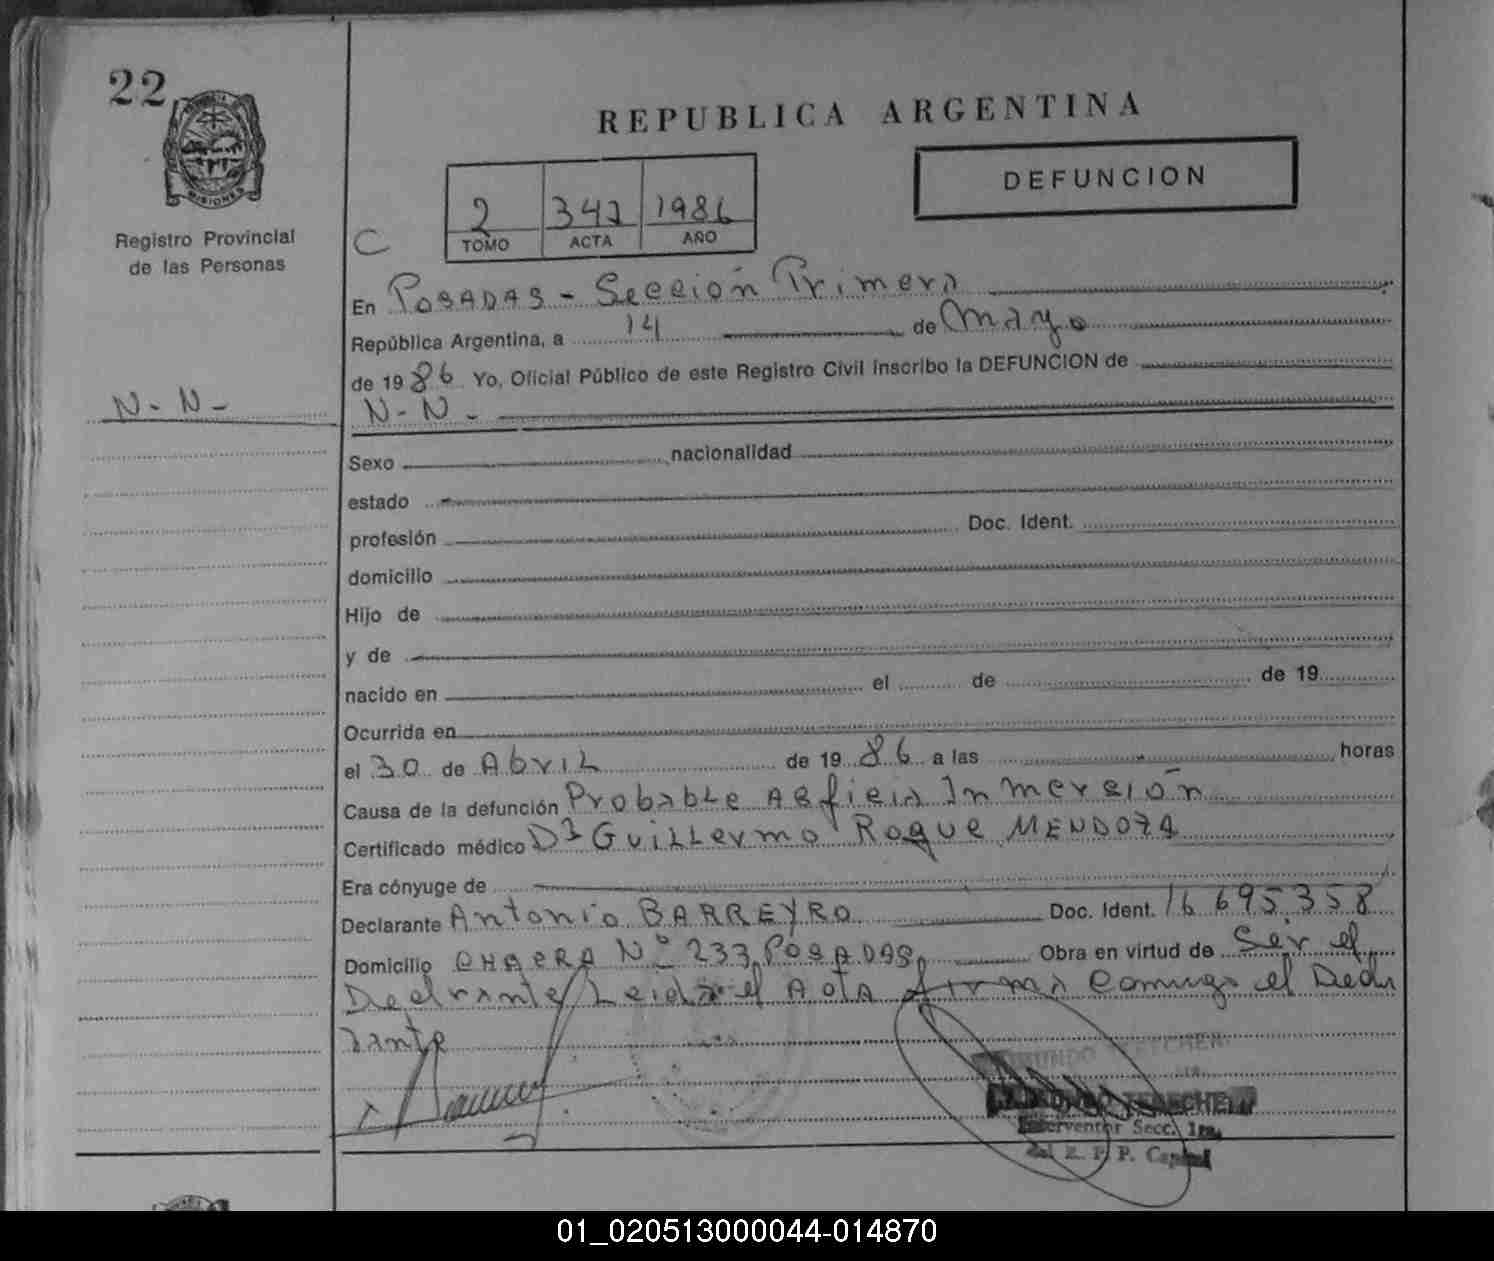 22
MISIONES
Registro Provincial
de las Personas
N. N.-
REPUBLICA ARGENTINA
DEFUNCION
C
2 342 1986
TOMO ACTA AÑO
En POSADAS - Sección Primera
República Argentina, a 14 de Mayo
de 1986 Yo, Oficial Público de este Registro Civil inscribo la DEFUNCION de
N-N-
Sexo nacionalidad
estado
profesión Doc. Ident.
domicilio
Hijo de
y de
nacido en el de de 19
Ocurrida en
el 30 de Abril de 1986 a las horas
Causa de la defunción Probable Asficia Inmersión
Certificado médico Dr Guillermo Roque MENDOZA
Era cónyuge de
Declarante Antonio BARREYRO Doc. Ident. 16.695.358
Domicilio CHACRA Nº 233 POSADAS, Obra en virtud de Ser el
Declarante Leida el Acta firma Comigo el Decla
rante
Interventor Secc. 1ra.
del R. P. P. Capital
01_020513000044-014870